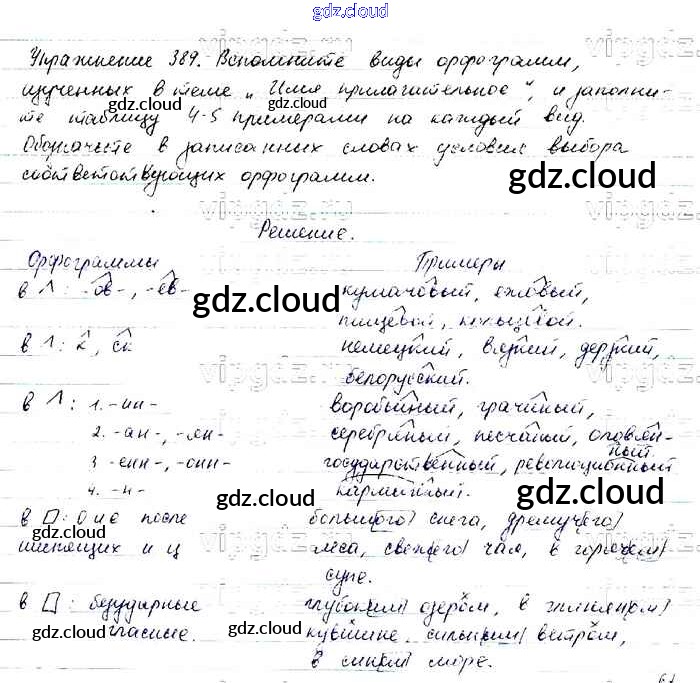 gdz.cloud
Упражнение 389. Вспомните виды орфограмм,
изученных в теме „Имя прилагательное“, и заполни-
те таблицу 4-5 примерами на каждый вид.
Обозначьте в записанных словах условия выбора
соответствующих орфограмм.
gdz.cloud
gdz.cloud
gdz.cloud
Решение.
Орфограммы Примеры
в Λ: -ов-, -ев- кумачовый, еловый,
gdz.cloud
пищевой, кольцевой.
в Λ: к, ск немецкий, вязкий, дерзкий,
белорусский.
в Λ: 1. -ин- воробьиный, грачиный,
2. -ан-, -ян- серебряный, песчаный, оловян-
ный
3 -енн-, -онн- государственный, революционный
4. -н- карманный.
gdz.cloud
gdz.cloud
gdz.cloud
в □: О и е после большого снега, дремучего
шипящих и ц леса, свежего чая, в горячем
супе.
в □: безударные глубоким озером, в глиняном
гласные. кувшине, сильным ветром,
в синем море.
gdz.cloud
gdz.cloud